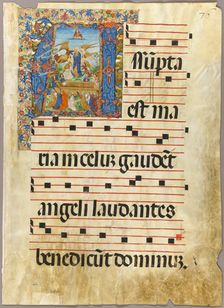 ssũpta
est ma
ria in celuz gaudẽt
angeli laudantes
benedicũt dominuz.